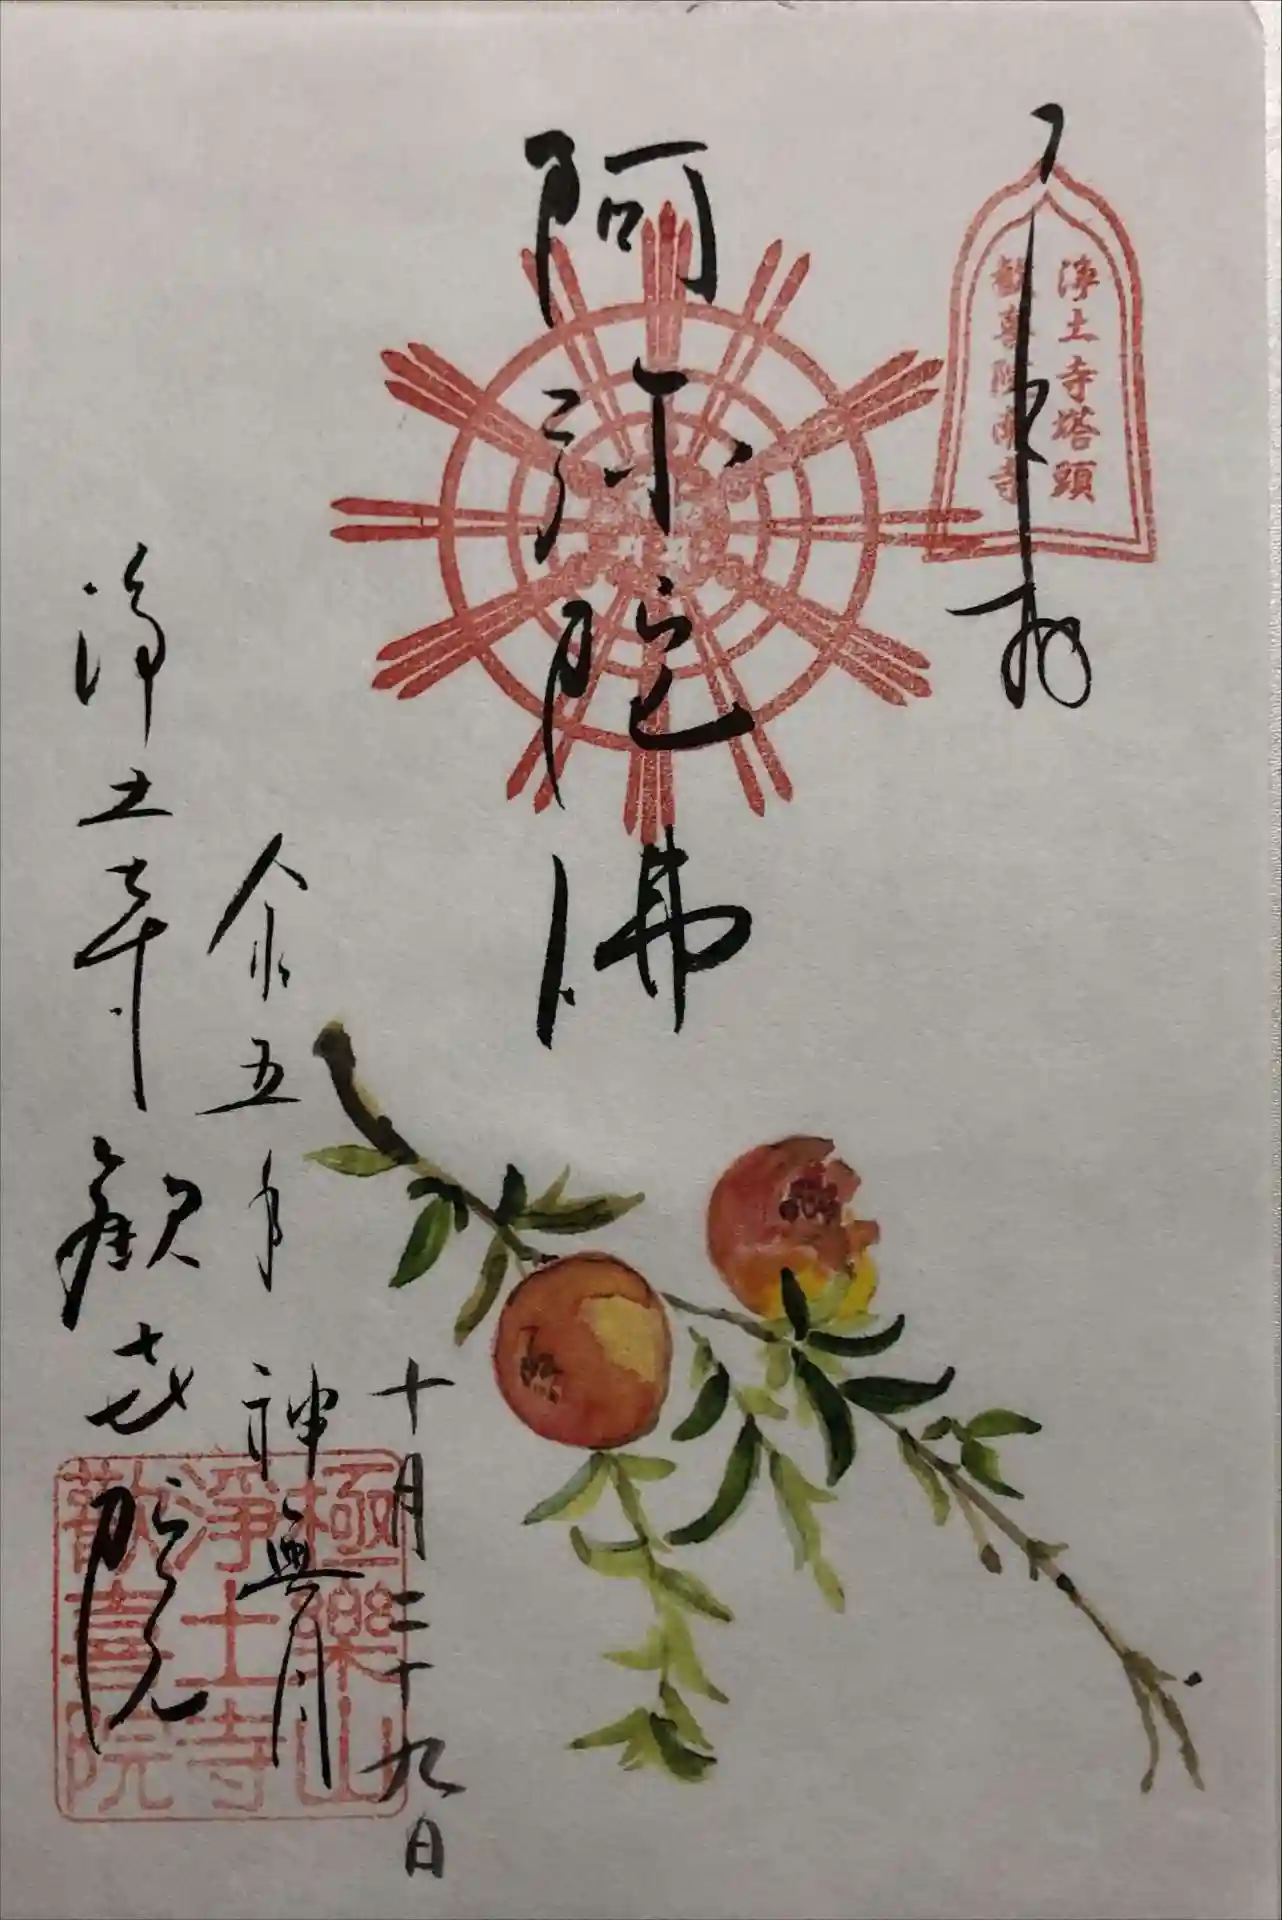 浄土寺塔頭
歓喜院南寺
阿弥陀佛
十月二十九日
令和五年 神無月
浄土寺 歓㐂院
極樂山
淨土寺
歡喜院